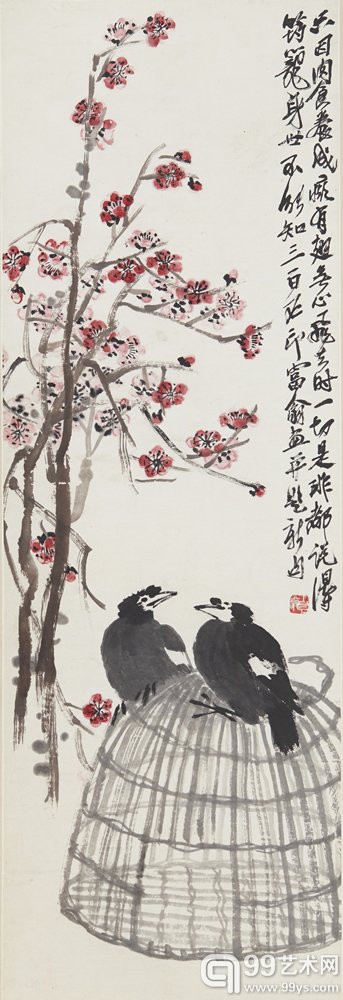 因肉食養成痴有翅無心飛去時一切是非都說得
筠籠身世不能知三百石印富翁畫并題新句
99艺术网
www.99ys.com